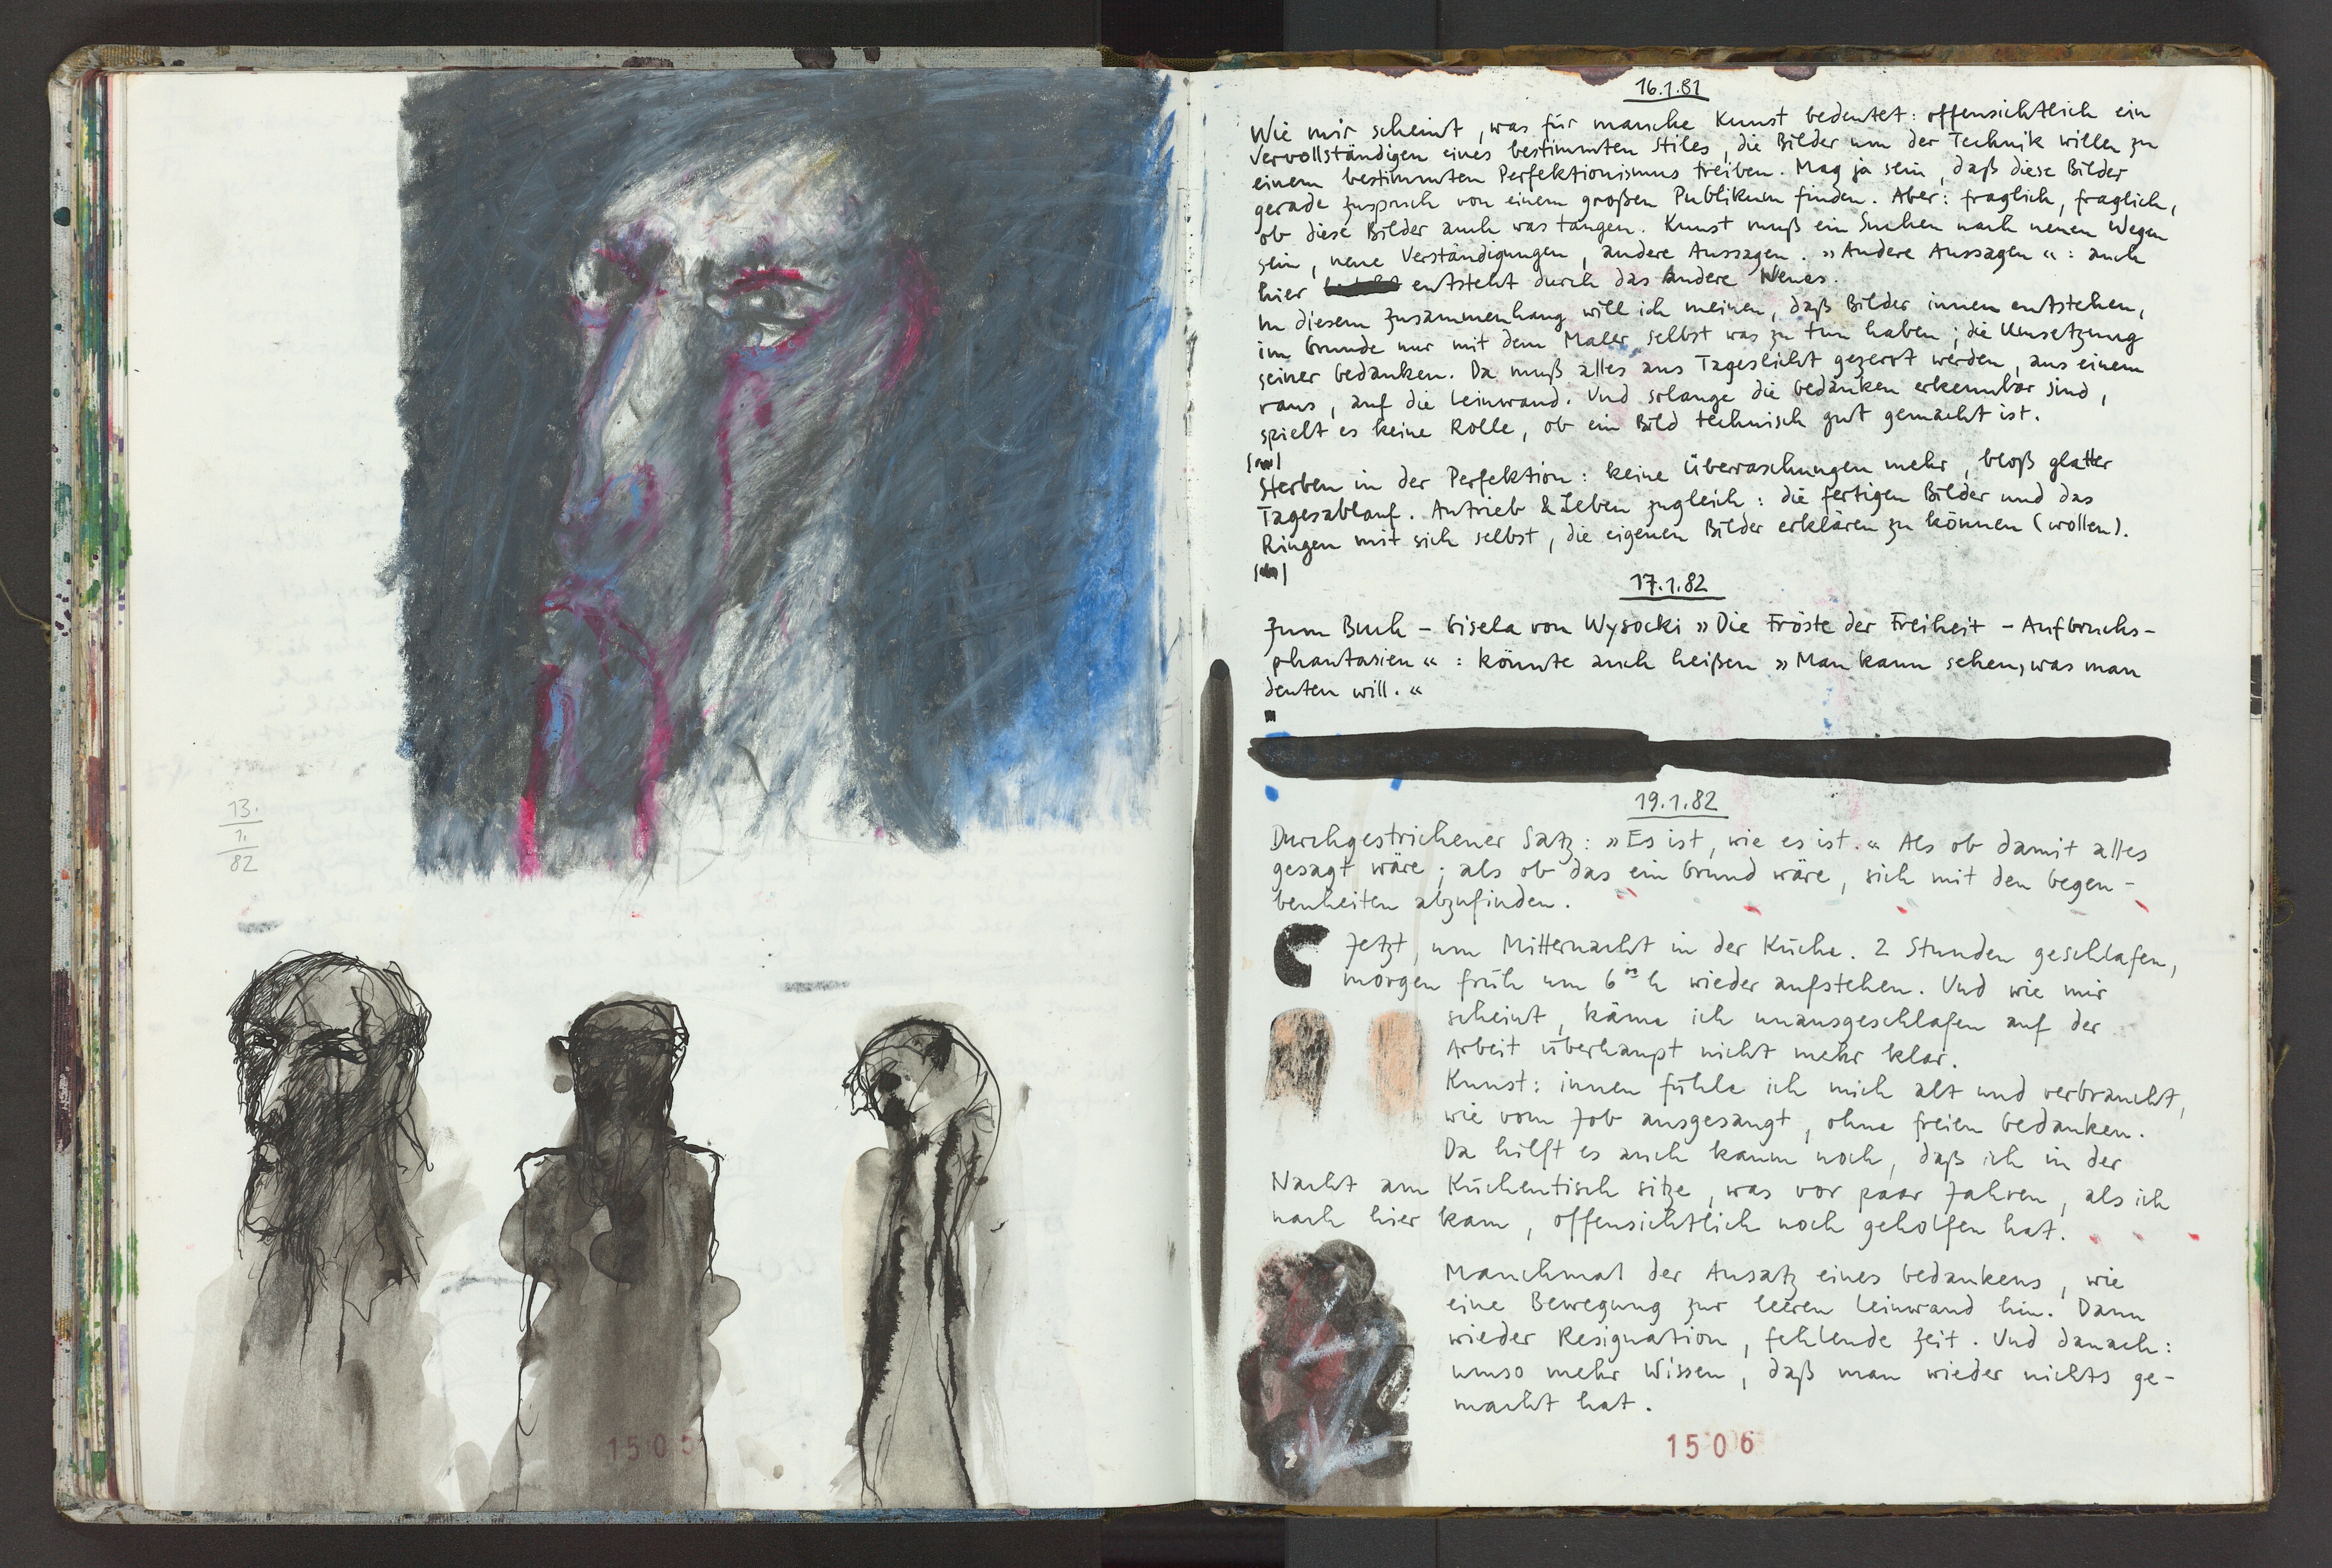 13.
1.
82
1505
16.1.81
Wie mir scheint, was für manche Kunst bedeutet: offensichtlich ein
Vervollständigen eines bestimmten Stiles, die Bilder um der Technik willen zu
einem bestimmten Perfektionismus treiben. Mag ja sein, daß diese Bilder
gerade Zuspruch von einem großen Publikum finden. Aber: fraglich, fraglich,
ob diese Bilder auch was taugen. Kunst muß ein Suchen nach neuen Wegen
sein, neue Verständigungen, andere Aussagen. »Andere Aussagen«: auch
hier entsteht durch das Andere Neues.
In diesem Zusammenhang will ich meinen, daß Bilder innen entstehen,
im Grunde nur mit dem Maler selbst was zu tun haben; die Umsetzung
seiner Gedanken. Da muß alles ans Tageslicht gezerrt werden, aus einem
raus, auf die Leinwand. Und solange die Gedanken erkennbar sind,
spielt es keine Rolle, ob ein Bild technisch gut gemacht ist.
Sterben in der Perfektion: keine Überraschungen mehr, bloß glatter
Tagesablauf. Antrieb & Leben zugleich: die fertigen Bilder und das
Ringen mit sich selbst, die eigenen Bilder erklären zu können (wollen).
17.1.82
Zum Buch – Gisela von Wysocki »Die Fröste der Freiheit – Aufbruchs-
phantasien«: könnte auch heißen »Man kann sehen, was man
deuten will.«
19.1.82
Durchgestrichener Satz: »Es ist, wie es ist.« Als ob damit alles
gesagt wäre; als ob das ein Grund wäre, sich mit den Gegen-
benheiten abzufinden.
Jetzt um Mitternacht in der Küche. 2 Stunden geschlafen,
morgen früh um 6 h wieder aufstehen. Und wie mir
scheint, käme ich unausgeschlafen auf der
Arbeit überhaupt nicht mehr klar.
Kunst: innen fühle ich mich alt und verbraucht,
wie vom Job ausgesaugt, ohne freien Gedanken.
Da hilft es auch kaum noch, daß ich in der
Nacht am Küchentisch sitze, was vor paar Jahren, als ich
nach hier kam, offensichtlich noch geholfen hat.
Manchmal der Ansatz eines Gedankens, wie
eine Bewegung zur leeren Leinwand hin. Dann
wieder Resignation, fehlende Zeit. Und danach:
umso mehr Wissen, daß man wieder nichts ge-
macht hat.
1506